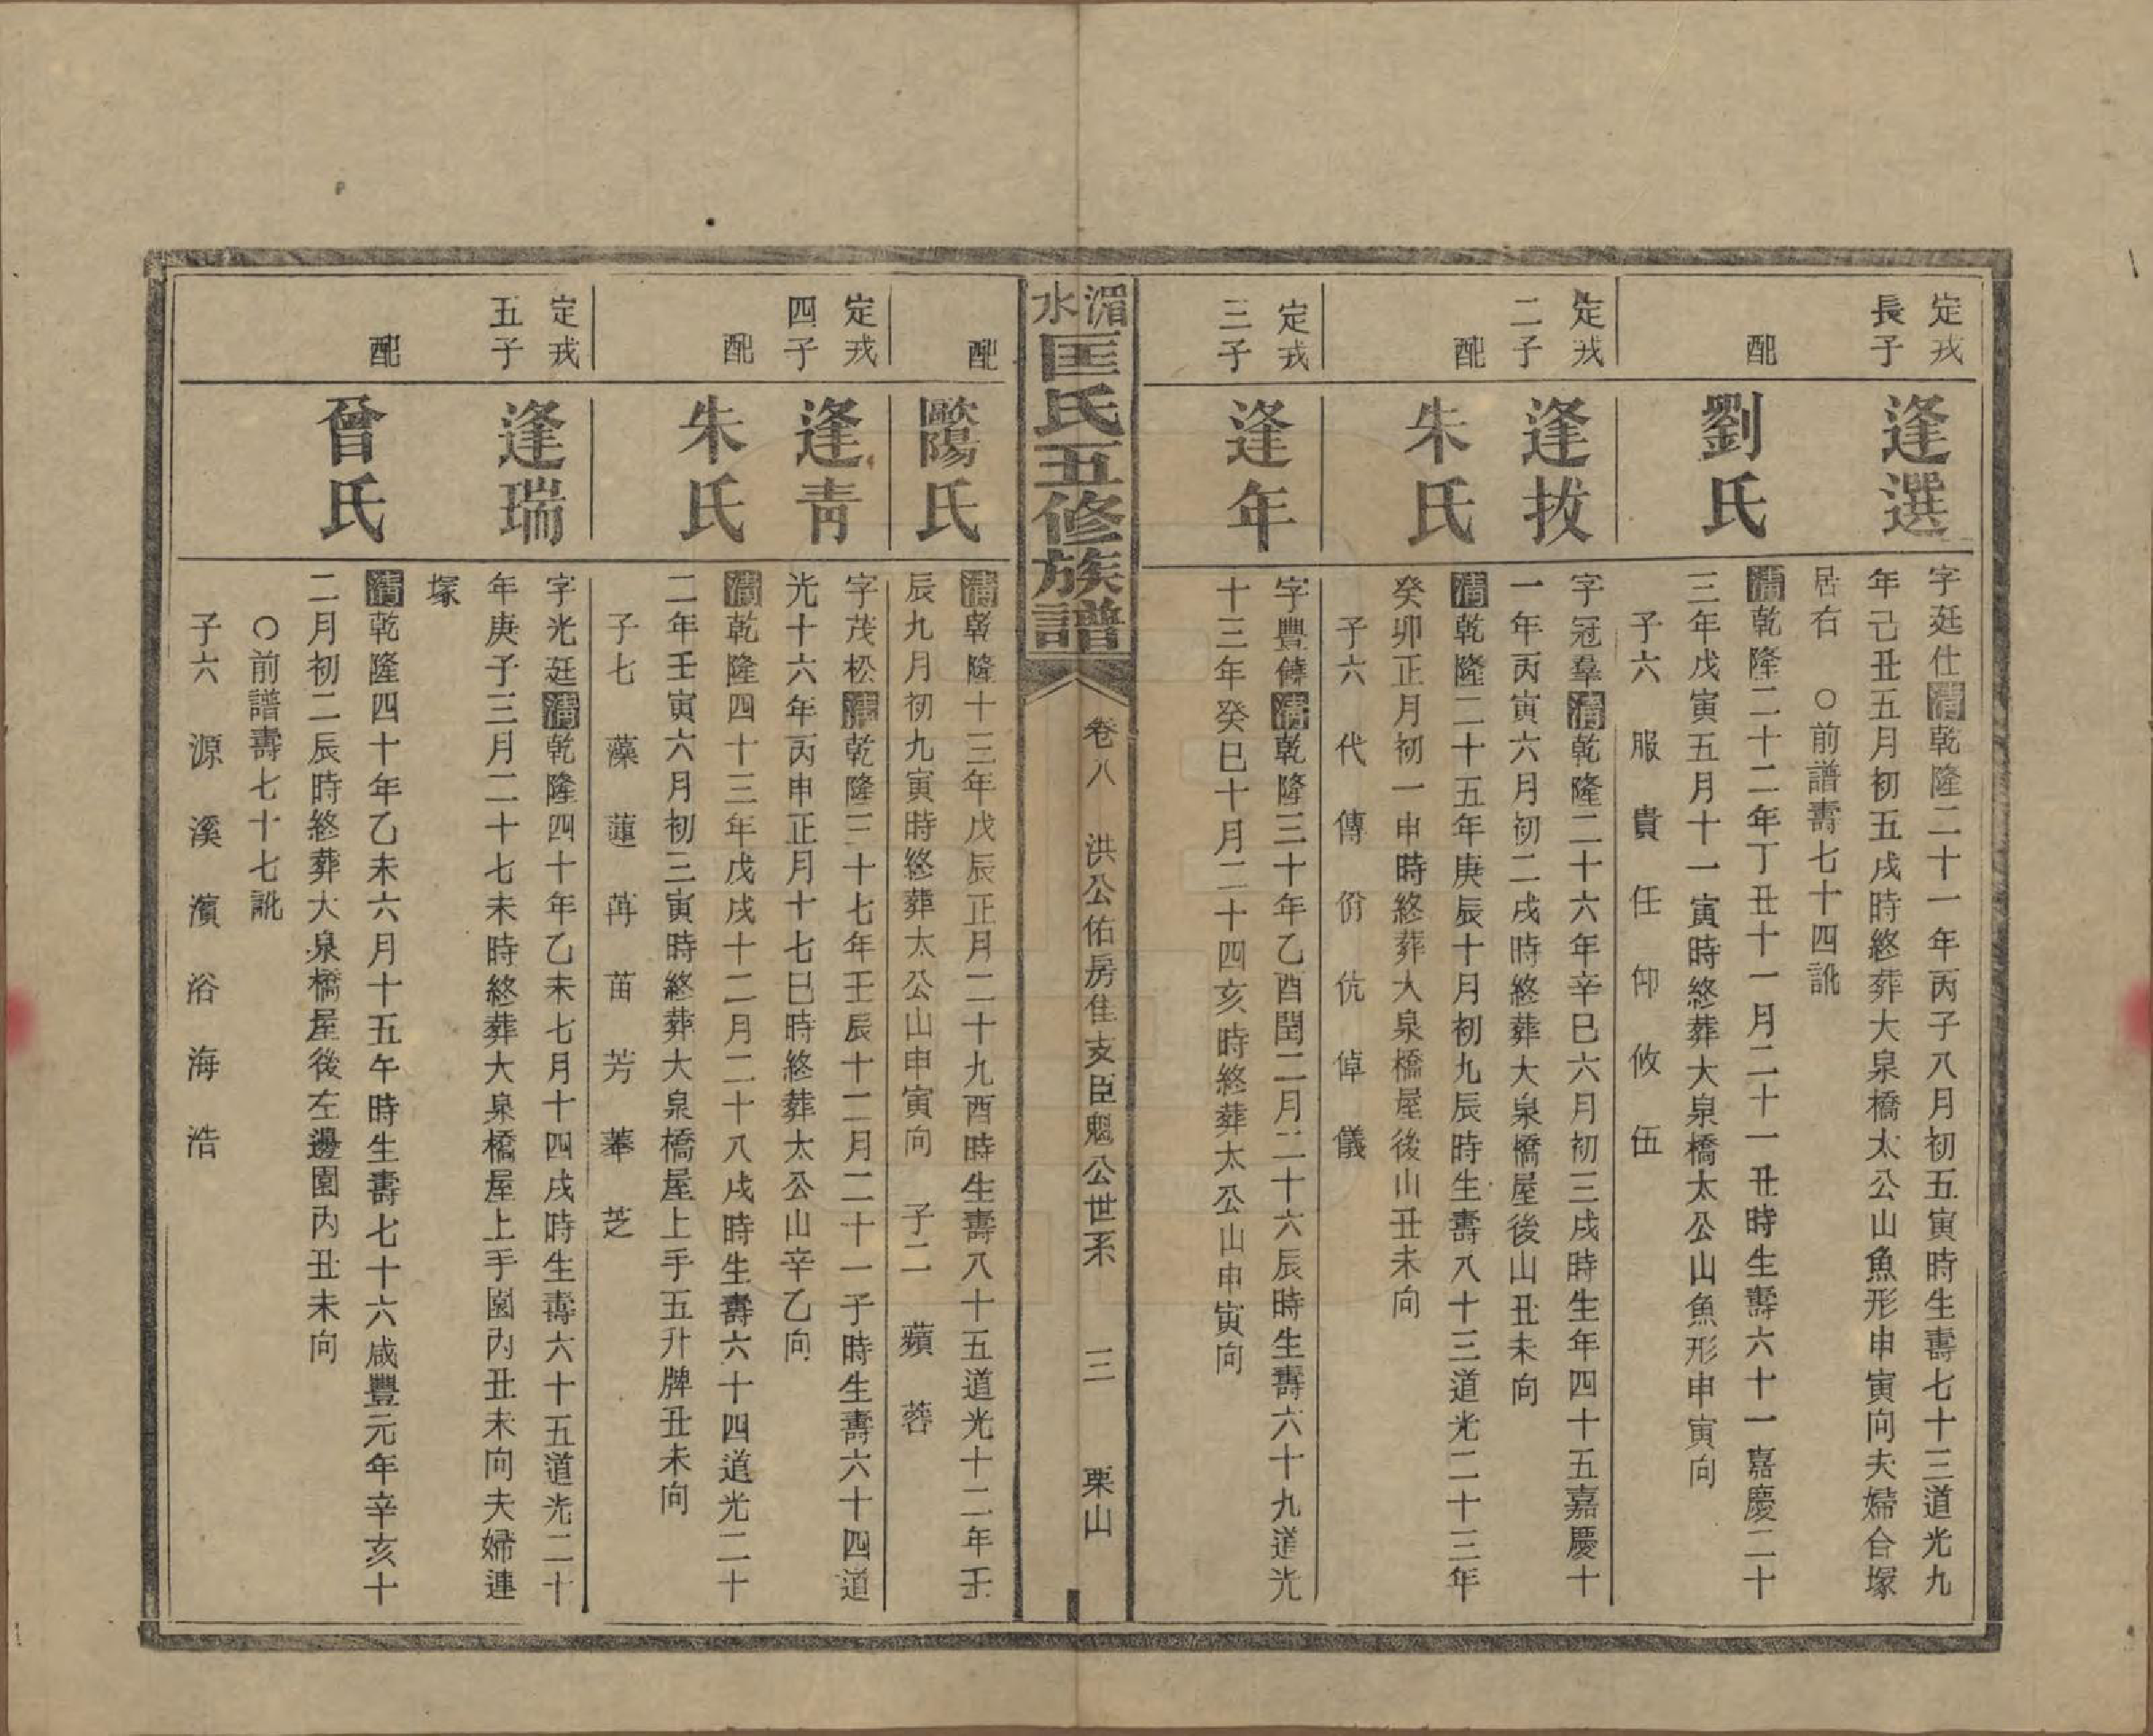 定戎
長子
逢選
字廷仕清乾隆二十一年丙子八月初五寅時生壽七十三道光九
年己丑五月初五戌時終葬大泉橋太公山魚形申寅向夫婦合塚
居右 〇前譜壽七十四訛
配
劉氏
清乾隆二十二年丁丑十一月二十一丑時生壽六十一嘉慶二十
三年戊寅五月十一寅時終葬大泉橋太公山魚形申寅向
子六 服 貴 任 仰 攸 伍
定戎
二子
逢拔
字冠羣清乾隆二十六年辛巳六月初三戌時生年四十五嘉慶十
一年丙寅六月初二戌時終葬大泉橋屋後山丑未向
配
朱氏
清乾隆二十五年庚辰十月初九辰時生壽八十三道光二十三年
癸卯正月初一申時終葬大泉橋屋後山丑未向
子六 代 傳 份 伉 倬 儀
定戎
三子
逢年
字豐儔清乾隆三十年乙酉閏二月二十六辰時生壽六十九道光
十三年癸巳十月二十四亥時終葬太公山申寅向
湄水匡氏五修族譜
卷八 洪公佑房佳支臣魁公世系 三 栗山
配
歐陽氏
清乾隆十三年戊辰正月二十九酉時生壽八十五道光十二年壬
辰九月初九寅時終葬太公山申寅向 子二 蘋 蓉
定戎
四子
逢青
字茂松清乾隆三十七年壬辰十二月二十一子時生壽六十四道
光十六年丙申正月十七巳時終葬太公山辛乙向
配
朱氏
清乾隆四十三年戊戌十二月二十八戌時生壽六十四道光二十
二年壬寅六月初三寅時終葬大泉橋屋上手五升牌丑未向
子七 藻 蓮 苒 苗 芳 菶 芝
定戎
五子
逢瑞
字光廷清乾隆四十年乙未七月十四戌時生壽六十五道光二十
年庚子三月二十七未時終葬大泉橋屋上手園內丑未向夫婦連
塚
配
曾氏
清乾隆四十年乙未六月十五午時生壽七十六咸豐元年辛亥十
二月初二辰時終葬大泉橋屋後左邊園內丑未向
〇前譜壽七十七訛
子六 源 溪 濱 浴 海 浩